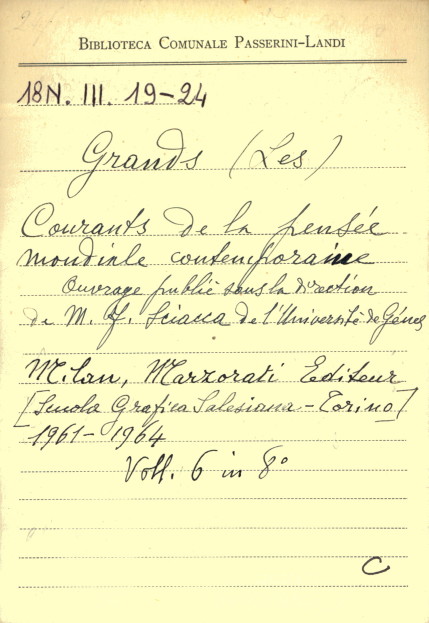 BIBLIOTECA COMUNALE PASSERINI-LANDI
18N. III. 19-24
Grands (Les)
Courants de la pensée
mondiale contemporaine
Ouvrage publié sous la direction
de M. F. Sciacca de l'Université de Gênes
Milan, Marzorati Editeur
[Scuola Grafica Salesiana - Torino]
1961-1964
Voll. 6 in 8°
C